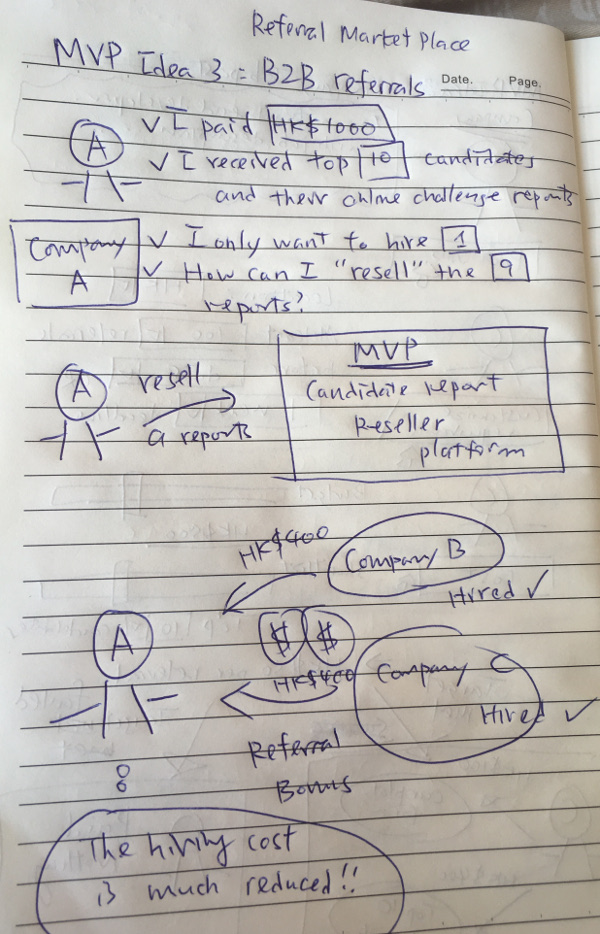 Referral Market Place
MVP Idea 3 = B2B referrals
Date. Page.
A
✓ I paid HK$1000
✓ I received top 10 candidates
and their online challenge reports
Company
A
✓ I only want to hire 1
✓ How can I "resell" the 9
reports?
A
resell
9 reports
MVP
Candidate report
Reseller
platform
HK$400
Company B
Hired ✓
A
$ $
HK$400
Company C
Hired ✓
Referral
Bonus
The hiring cost
is much reduced!!